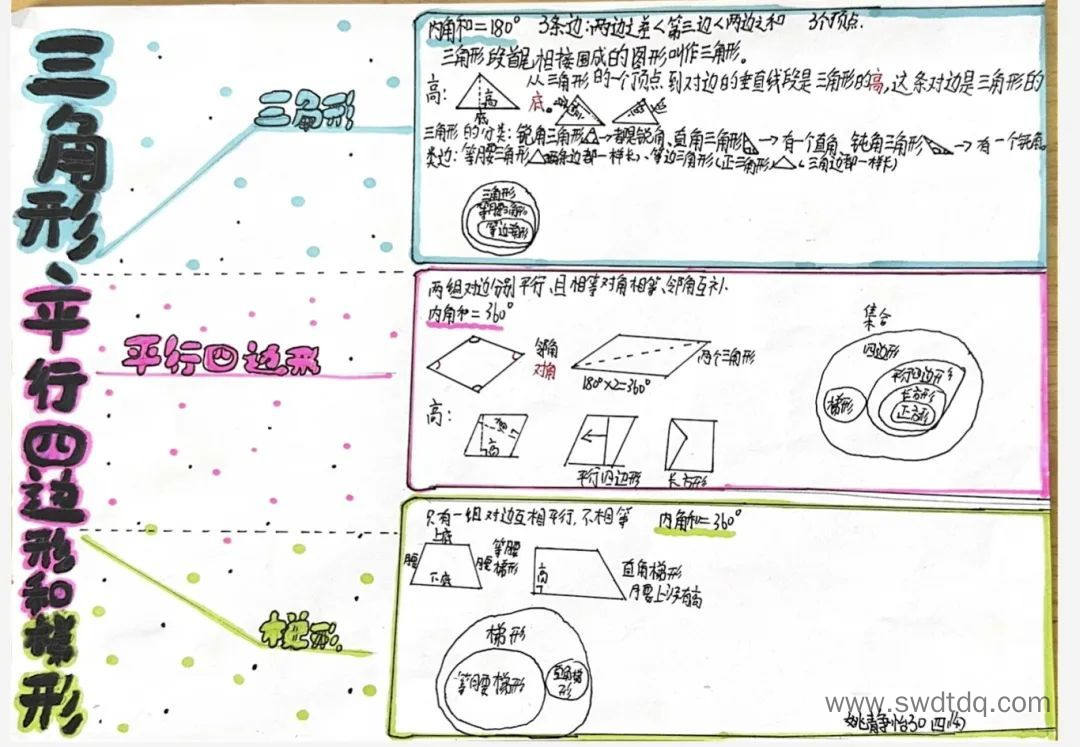 三角形、平行四边形和梯形
三角形
内角和=180° 3条边:两边之差<第三边<两边之和 3个顶点.
三角形段首尾相接围成的图形叫作三角形。
高: 从三角形的一个顶点到对边的垂直线段是三角形的高,这条对边是三角形的
高 底。
底
三角形的分类:锐角三角形→都是锐角、直角三角形→有一个直角、钝角三角形→有一个钝角。
类边:等腰三角形(两条边都一样长)、等边三角形(正三角形)(三角边都一样长)
三角形
等腰三角形
等边三角形
平行四边形
两组对边分别平行,且相等对角相等、邻角互补.
内角和=360°
邻角
对角
两个三角形
180°×2=360°
高:
高
平行四边形
长方形
集合
四边形
平行四边形
长方形
正方形
梯形
梯形.
只有一组对边互相平行,不相等 内角和=360°
上底
腰 腰
下底
等腰
梯形
高
直角梯形
腰上没有高
梯形
等腰梯形
直角梯
形
www.swdtdq.com
姚静怡30四(4)